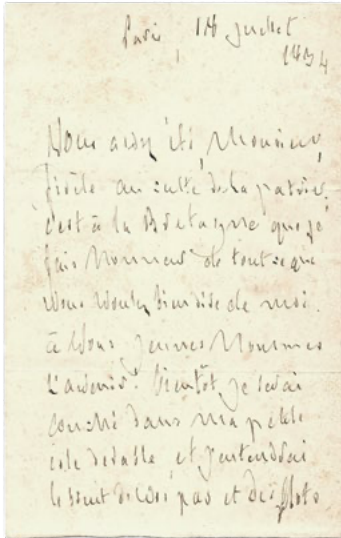 Paris, 18 juillet
1834
Vous avez été, Monsieur,
fidèle au culte de la patrie,
c'est à la Bretagne que je
fais honneur de tout ce que
vous voulez bien dire de moi.
à vous jeunes hommes
l'avenir! Bientôt je serai
couché dans ma petite
isle de sable, et j'entendrai
le bruit de vos pas et des flots